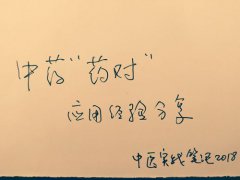 中药"药对"
应用经验分享
中医实践笔记2018